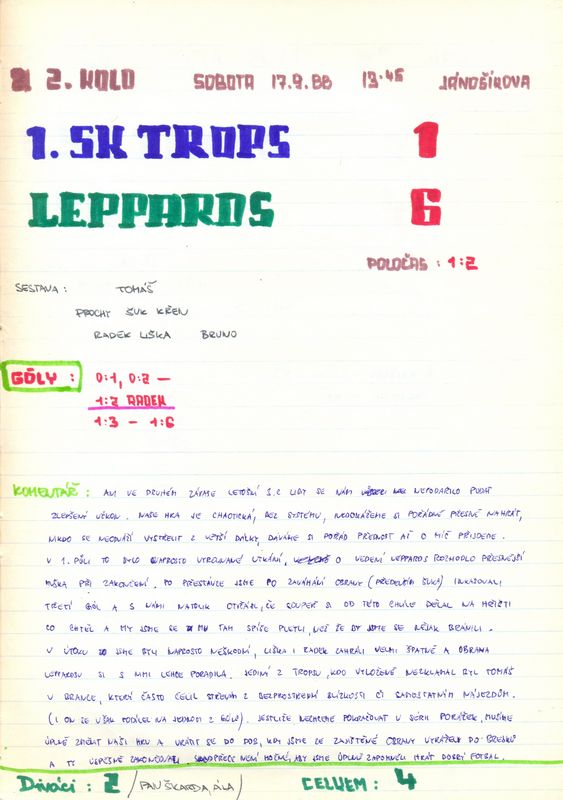 2. KOLO SOBOTA 17.9.88 13.45 JÁNOŠÍKOVA
1. SK TROPS 1
LEPPARDS 6
POLOČAS : 1:2
SESTAVA : TOMÁŠ
PROCHY ŠUK KŘEN
RADEK LIŠKA BRUNO
GÓLY : 0:1, 0:2 —
1:2 RADEK
1:3 — 1:6
KOMENTÁŘ : ANI VE DRUHÉM ZÁPASE LETOŠNÍ 3.2 LIGY SE NÁM NEPODAŘILO PODAT
ZLEPŠENÝ VÝKON. NAŠE HRA JE CHAOTICKÁ, BEZ SYSTÉMU, NEDOKÁŽEME SI POŘÁDNĚ PŘESNĚ NAHRÁT,
NIKDO SE NEODVÁŽÍ VYSTŘELIT Z VĚTŠÍ DÁLKY, DÁVÁME SI POŘÁD PŘEDNOST AŽ O MÍČ PŘIJDEME.
V 1. PŮLI TO BYLO NAPROSTO VYROVNANÉ UTKÁNÍ, O VEDENÍ LEPPARDS ROZHODLO PŘESNĚJŠÍ
MUŠKA PŘI ZAKONČENÍ. PO PŘESTÁVCE JSME PO ZAVÁHÁNÍ OBRANY (PŘEDEVŠÍM ŠUKA) INKASOVALI
TŘETÍ GÓL A S NÁMI NATOLIK OTŘÁSL, ŽE SOUPEŘ SI OD TÉTO CHVÍLE DĚLAL NA HŘIŠTI
CO CHTĚL A MY JSME SE MU TAM SPÍŠE PLETLI, NEŽ ŽE BY JSME SE NĚJAK BRÁNILI.
V ÚTOKU JSME BYLI NAPROSTO NEŠKODNÍ, LIŠKA I RADEK ZAHRÁLI VELMI ŠPATNĚ A OBRANA
LEPPARDSU SI S NIMI LEHCE PORADILA. JEDINÝ Z TROPSU, KDO VYLOŽENĚ NEZKLAMAL BYL TOMÁŠ
V BRANCE, KTERÝ ČASTO ČELIL STŘELÁM Z BEZPROSTŘEDNÍ BLÍZKOSTI ČI SAMOSTATNÝM NÁJEZDŮM.
(I ON SE VŠAK PODÍLEL NA JEDNOM Z GÓLŮ). JESTLIŽE NECHCEME POKRAČOVAT V SÉRII PORÁŽEK, MUSÍME
ÚPLNĚ ZMĚNIT NAŠI HRU A VRÁTIT SE DO DOB, KDY JSME ZE ZAJIŠTĚNÉ OBRANY VYRÁŽELI DO BREJKŮ
A TY ÚSPĚŠNĚ ZAKONČOVALI. PŘECE NENÍ MOŽNÉ, ABY JSME ÚPLNĚ ZAPOMNĚLI HRÁT DOBRÝ FOTBAL.
Diváci : 2 (PAN ŠKARDA, ÁLA) CELKEM : 4